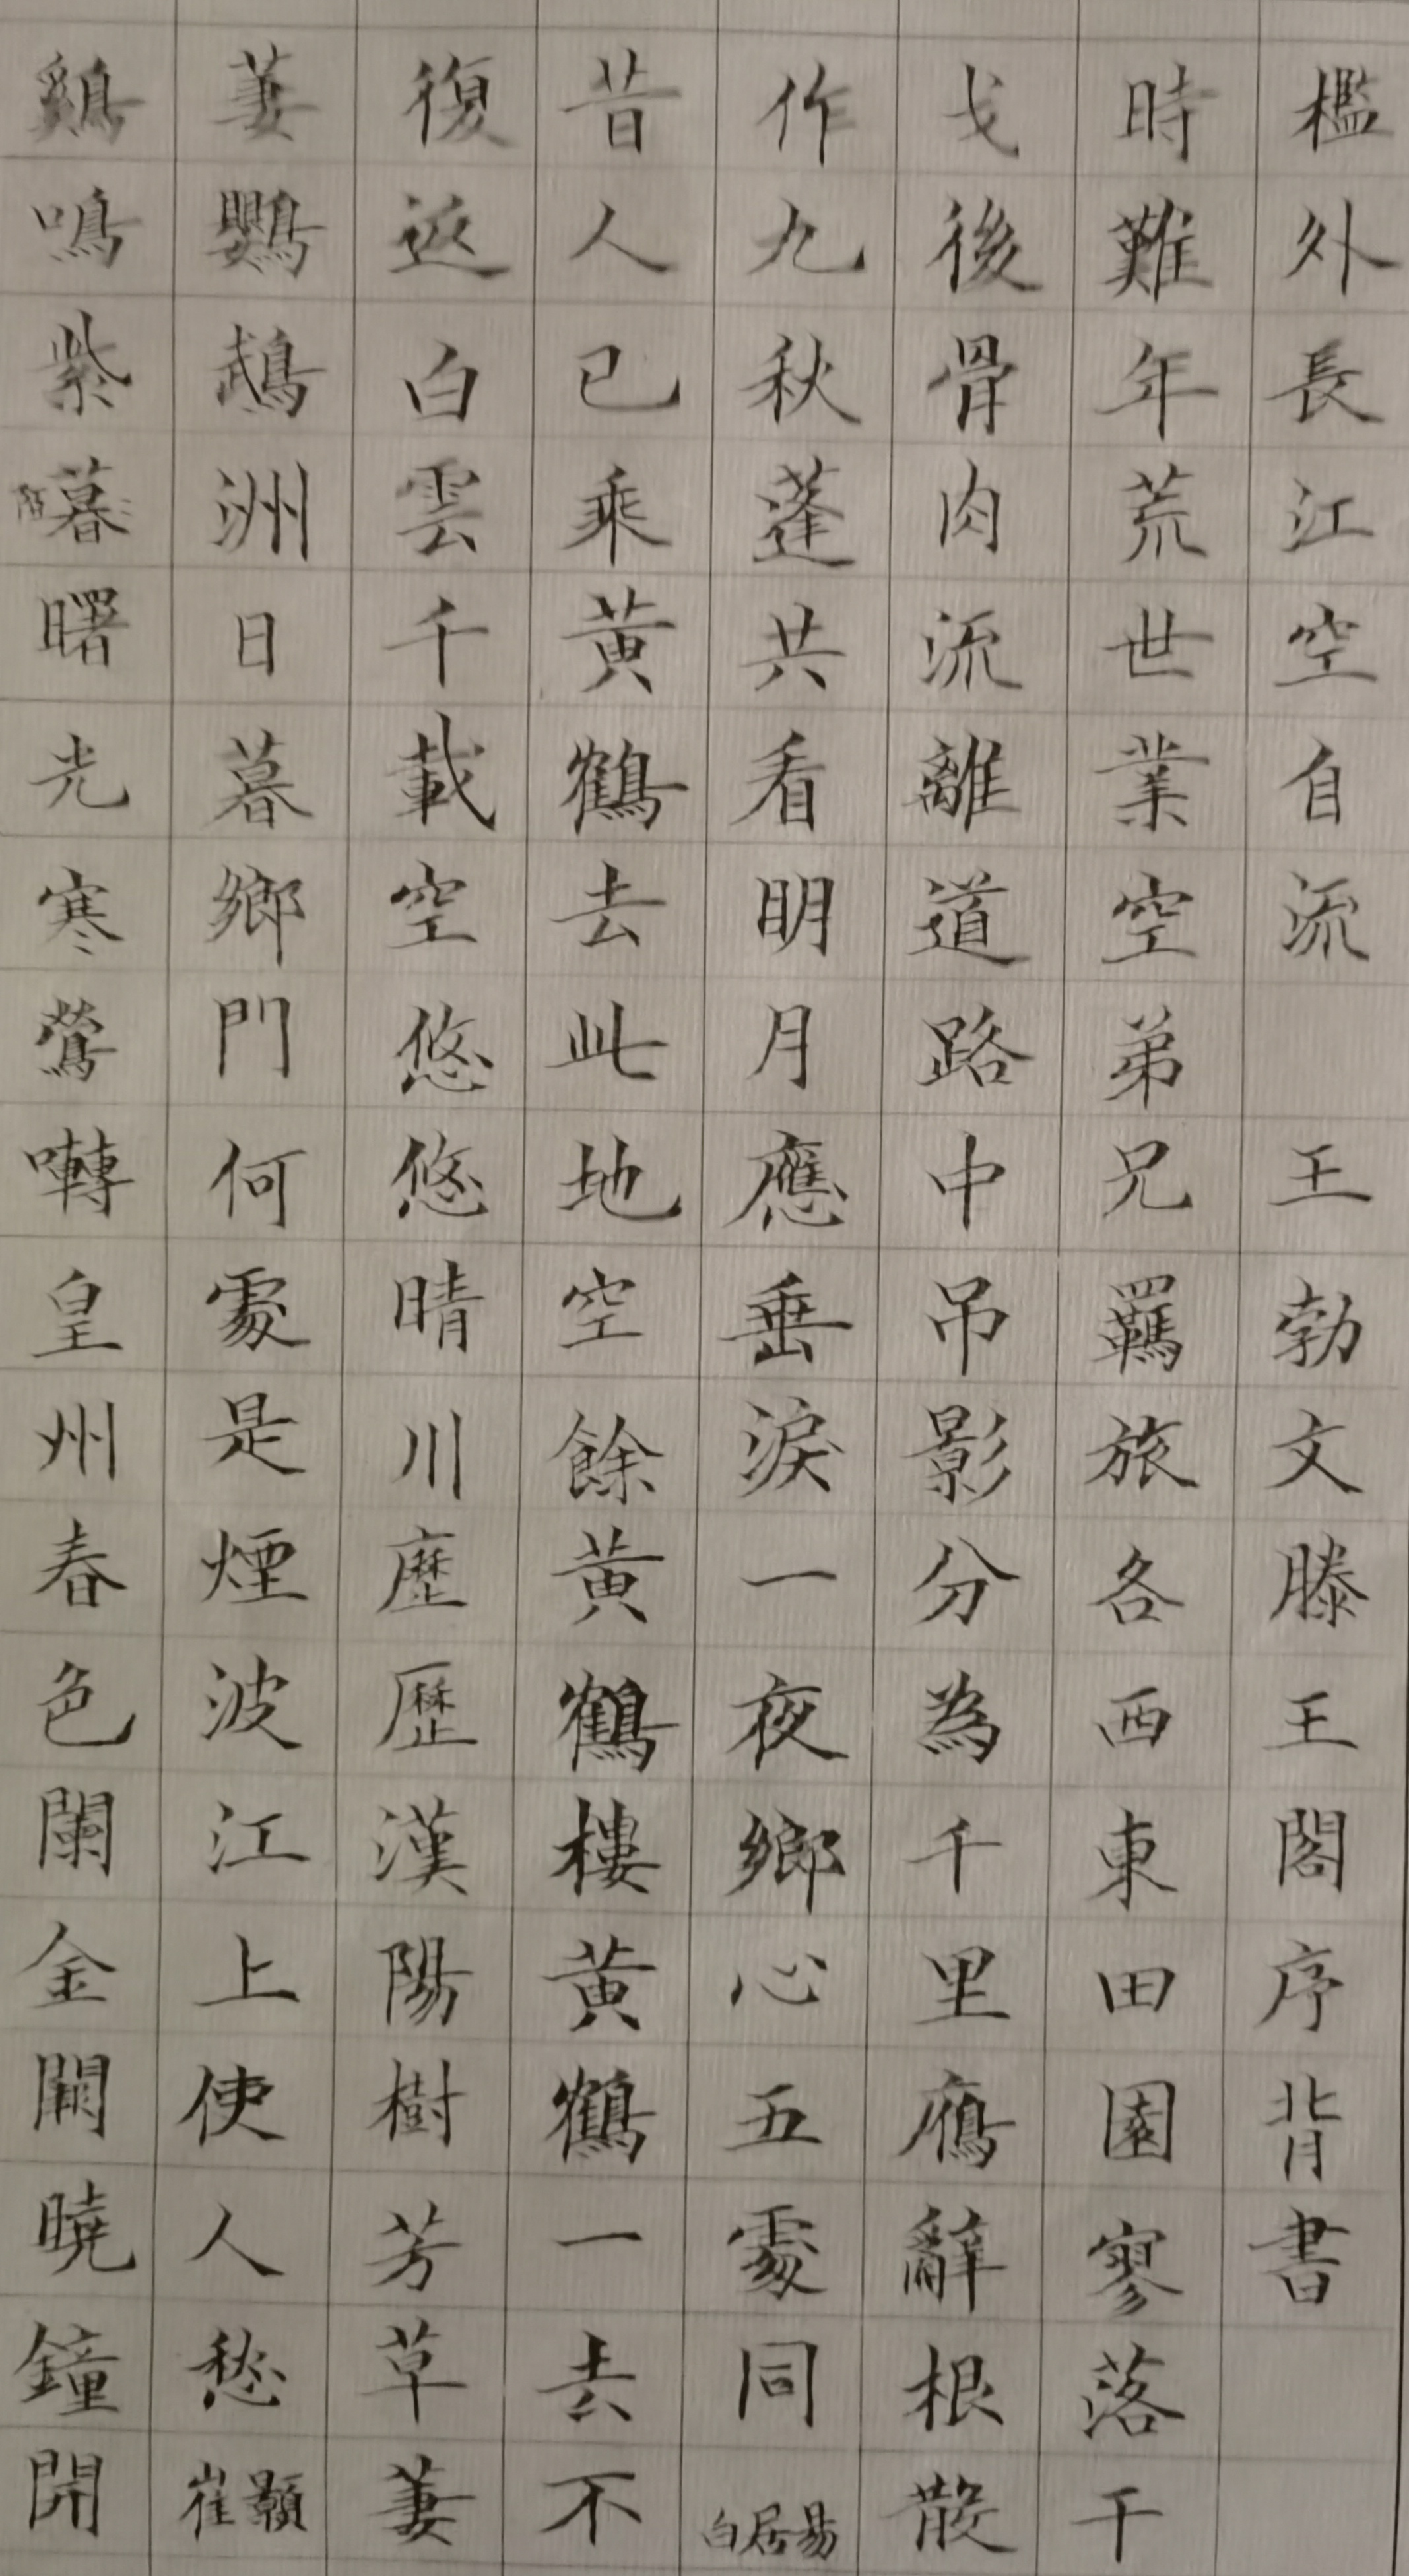 檻外長江空自流 王勃文滕王閣序背書
時難年荒世業空弟兄羈旅各西東田園寥落干
戈後骨肉流離道路中吊影分為千里鴈辭根散
作九秋蓬共看明月應垂淚一夜鄉心五處同白居易
昔人已乘黃鶴去此地空餘黃鶴樓黃鶴一去不
復返白雲千載空悠悠晴川歷歷漢陽樹芳草萋
萋鸚鵡洲日暮鄉門何處是煙波江上使人愁崔顥
鷄鳴紫暮陌曙光寒鶯囀皇州春色闌金闕曉鐘開